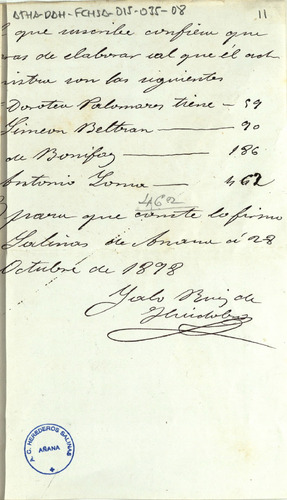 ATHA-DAH-FCHSA-D15-035-08 11
que suscribe confiesa que
ras de elaborar sal que él ad
nistra son las siguientes
Dorotea Palomares tiene — 59
Simeon Beltran — 90
de Bonifaz — 186
Antonio Loma — 462
462
para que conste lo firmo
Salinas de Añana á 28
Octubre de 1898
Ruiz de
Huidobro
A.C. HEREDEROS SALINAS
AÑANA